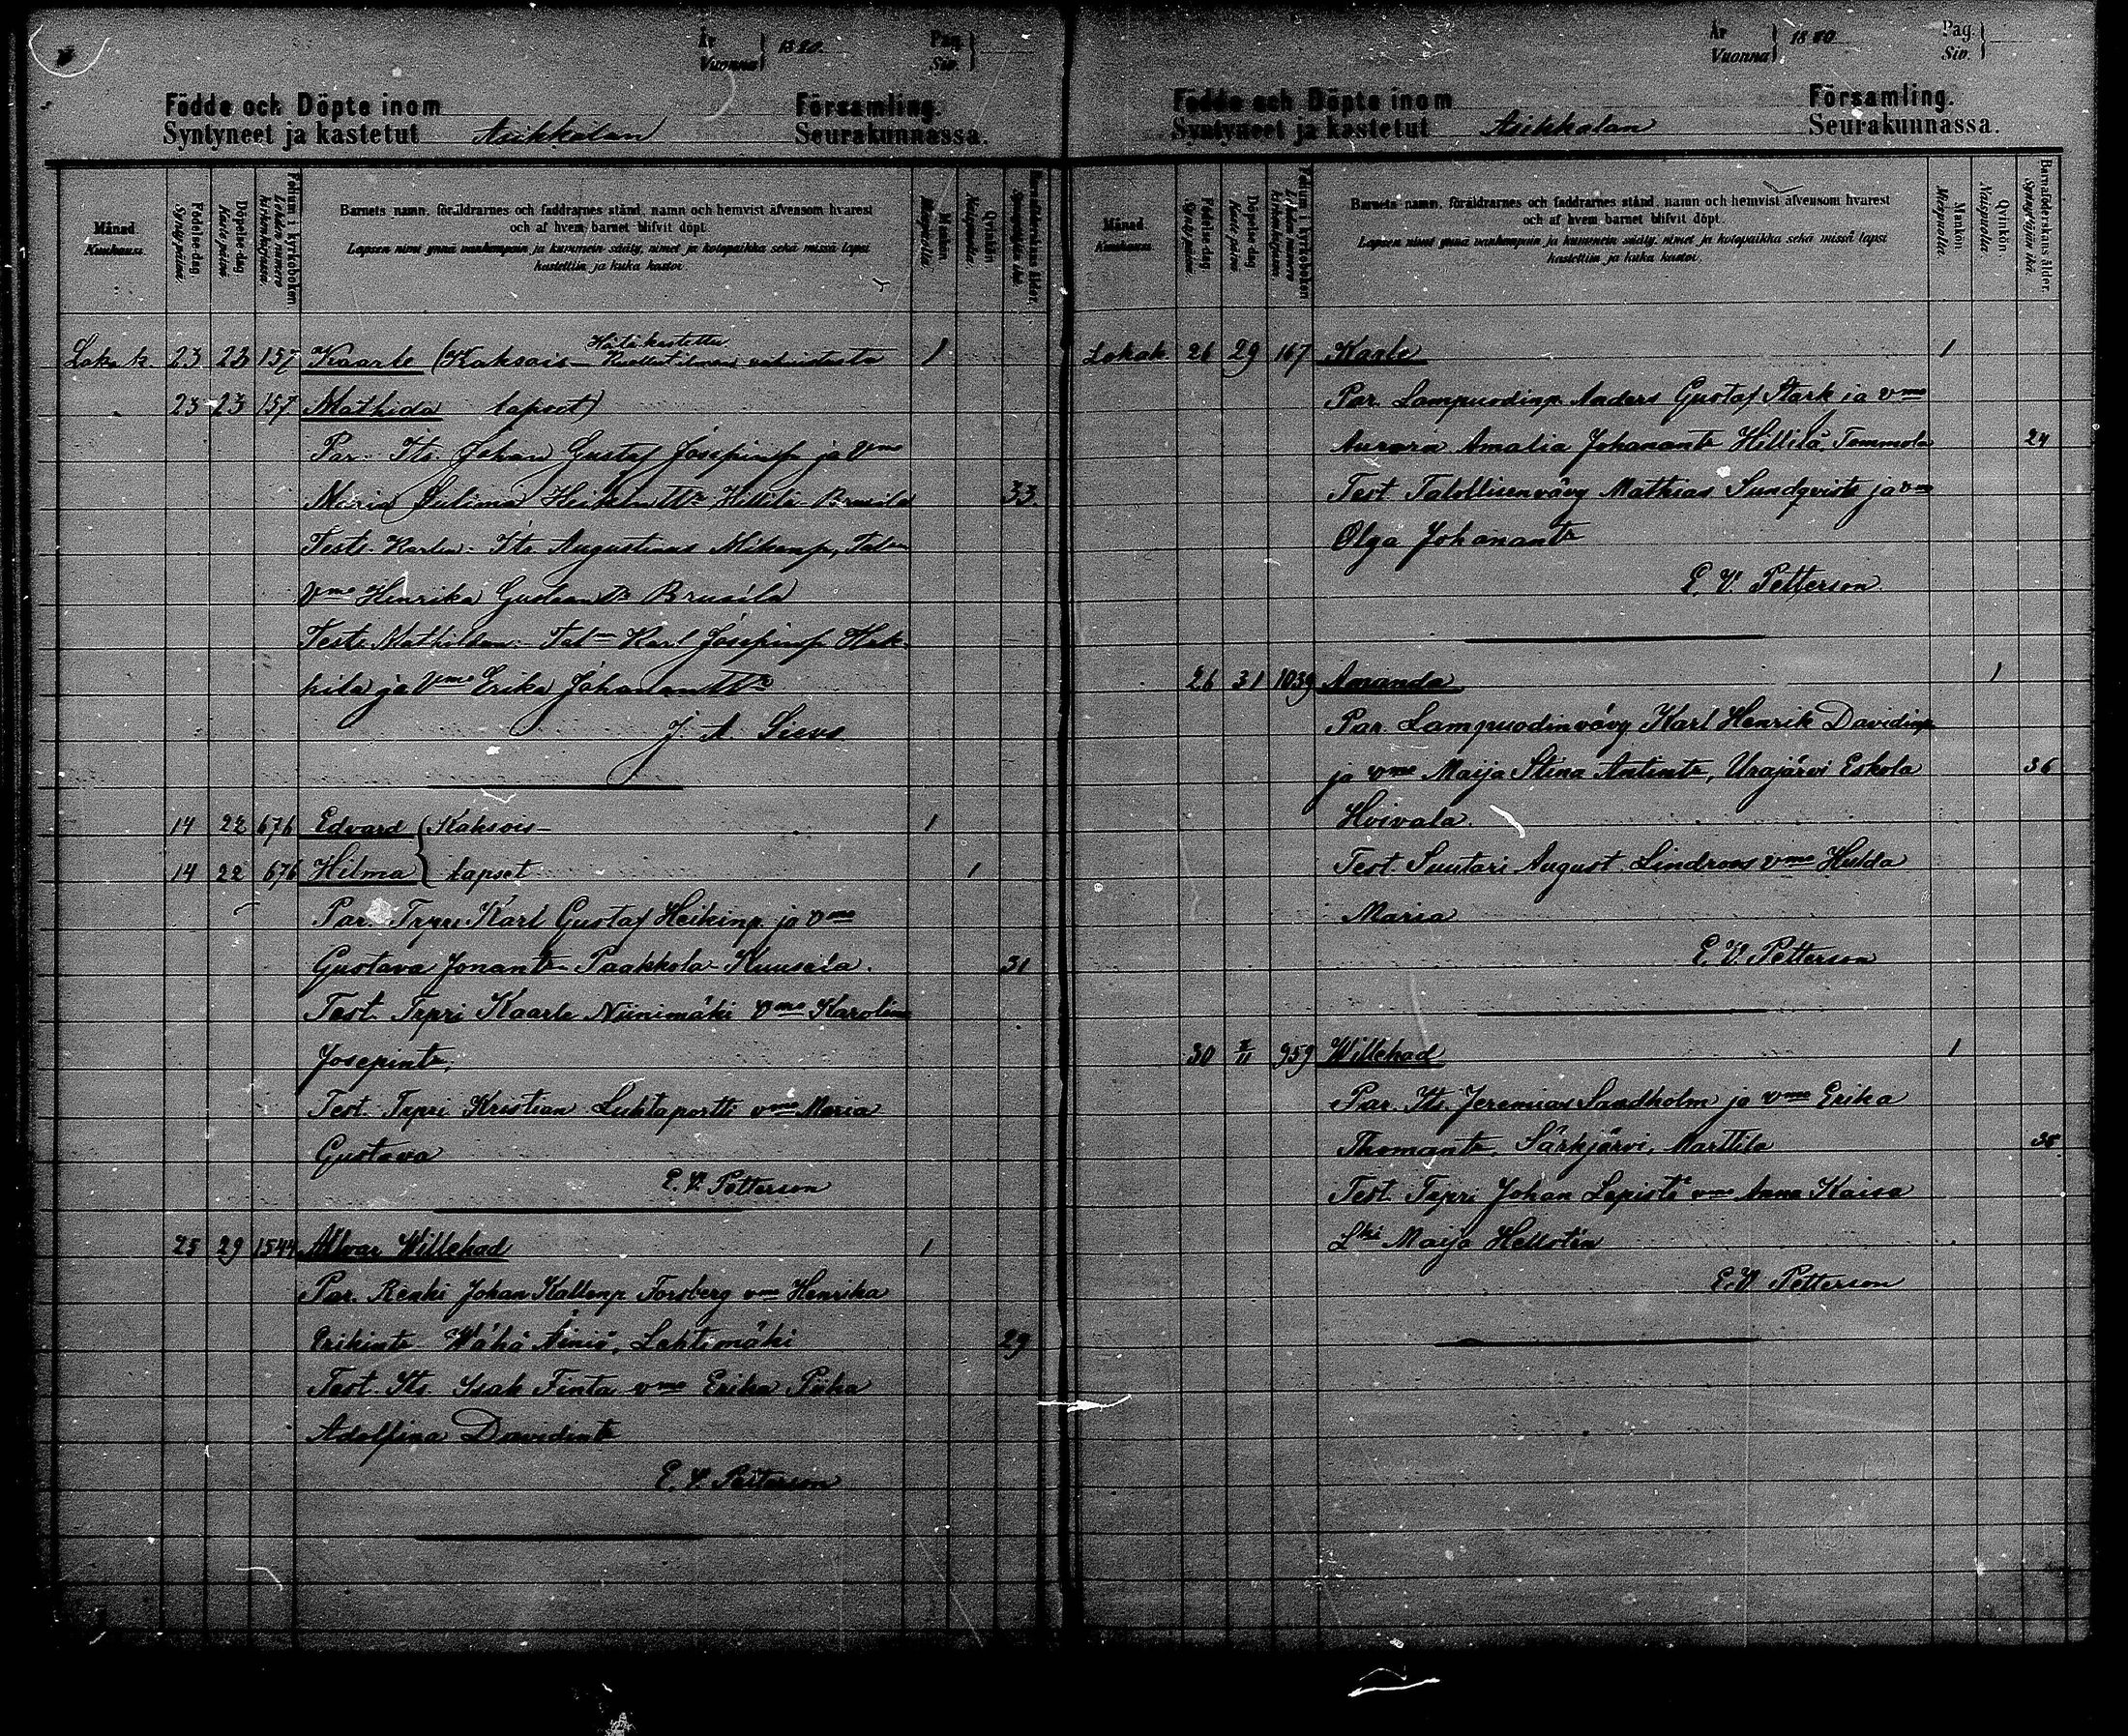 År
Vuonna } 1880.
Pag.
Siv. }
Födde och Döpte inom Församling.
Syntyneet ja kastetut Asikkalan Seurakunnassa.
Månad. Kuukausi.
Födelse-dag. Synty päivä.
Döpelse-dag. Kaste päivä.
Folium i kyrkoboken. Lehden numero kirkonkirjassa.
Barnets namn, föräldrarnes och faddrarnes stånd, namn och hemvist äfvensom hvarest
och af hvem barnet blifvit döpt.
Lapsen nimi ynnä vanhempain ja kummein sääty, nimet ja kotopaikka sekä missä lapsi
kastettiin ja kuka kastoi.
Mankön. Miespuolia.
Qvinkön. Naispuolia.
Barnaföderskans ålder. Synnyttäjän ikä.
Hätäkastettu
Lokak. 23 23 157 Kaarle (Kaksois- Kuollut ilman 1
23 23 157 Mathida lapset)
Par. Its. Johan Gustaf Josepinp ja Vmo
Maria Heikintr Hillilä Brusila 33.
Test. Karlin: Its. Augustinus Mikonp,
Vmo Henrika Brusila
Test. Mathildan: Karl Josepinp Hak-
kila ja Vmo Erika Johanantr
J. A. Sievs
14 22 676 Edvard { Kaksois- 1
14 22 676 Hilma { lapset 1
Par. Trpri Karl Gustaf Heikinp. ja vmo
Gustava Jonantr Paakkola Kuusela. 31
Test. Trpri Kaarle Niinimäki Vmo Karolina
Josepintr,
Test. Trpri Kristian Luhtaportti vmo Maria
Gustava
E. V. Petterson
25 29 1544 Allvar Willehad 1
Par. Renki Johan Kallenp Forsberg vmo Henrika
Erikintr Wähä Äiniö, Lehtimäki 29
Test. Its. Isak Finta vmo Erika Piika
Adolfina Davidintr
E. V. Petterson
År
Vuonna } 1880
Pag.
Siv. }
Födde och Döpte inom Församling.
Syntyneet ja kastetut Asikkalan Seurakunnassa.
Månad. Kuukausi.
Födelse-dag. Synty päivä.
Döpelse-dag. Kaste päivä.
Folium i kyrkoboken. Lehden numero kirkonkirjassa.
Barnets namn, föräldrarnes och faddrarnes stånd, namn och hemvist äfvensom hvarest
och af hvem barnet blifvit döpt.
Lapsen nimi ynnä vanhempain ja kummein sääty, nimet ja kotopaikka sekä missä lapsi
kastettiin ja kuka kastoi.
Mankön. Miespuolia.
Qvinkön. Naispuolia.
Barnaföderskans ålder. Synnyttäjän ikä.
Lokak. 26 29 167 Kaarle 1
Par. Lampuodinp. Anders Gustaf Stark ja vmo
Aurora Amalia Johanantr Hillilä, Tommola 24
Test. Talollisenvävy Mathias Sundqvist ja vmo
Olga Johanantr
E. V. Petterson.
26 31 1039 Amanda 1
Par. Lampuodinvävy Karl Henrik Davidinp
ja vmo Maija Stina Antintr, Urajärvi Eskola 36
Hoivala.
Test. Suutari August Lindroos vmo Hulda
Maria
E. V. Petterson
30 959 Willehad 1
Par. Its. Jeremias Sandholm ja vmo Erika
Thomantr, Särkjärvi, Marttila 38
Test. Trpri Johan Lepistö vmo Anna Kaisa
Lki Maija Hellstin
E. V. Petterson